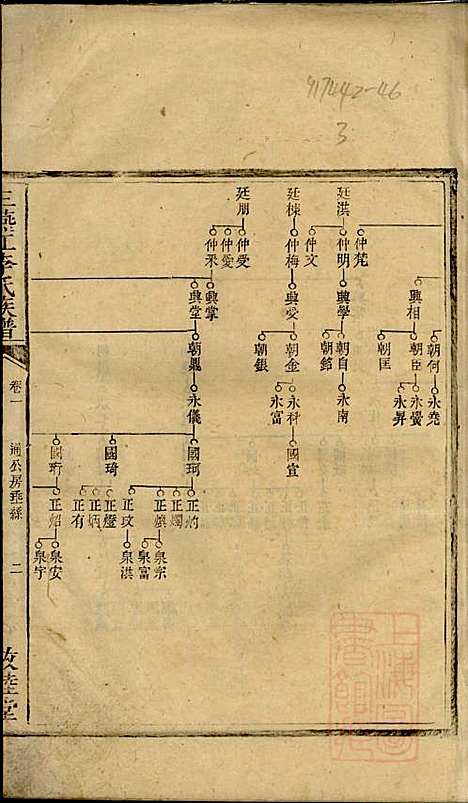 917442-46
3
廷洪
廷棟
廷朋
仲梵
仲明
仲文
仲梅
仲受
仲愛
仲釆
興相
興學
興愛
興掌
興堂
朝何
朝臣
朝匡
朝自
朝銘
朝金
朝銀
朝鳳
永堯
永黌
永昇
永南
永科
永富
永儀
國宣
國珂
國琦
國珩
正灼
正燭
正煥
正玟
正燈
正炳
正有
正炤
泉宗
泉富
泉洪
泉安
泉宇
江李氏族譜
卷一
通公房垂絲
二
敦睦堂
上海圖書館藏